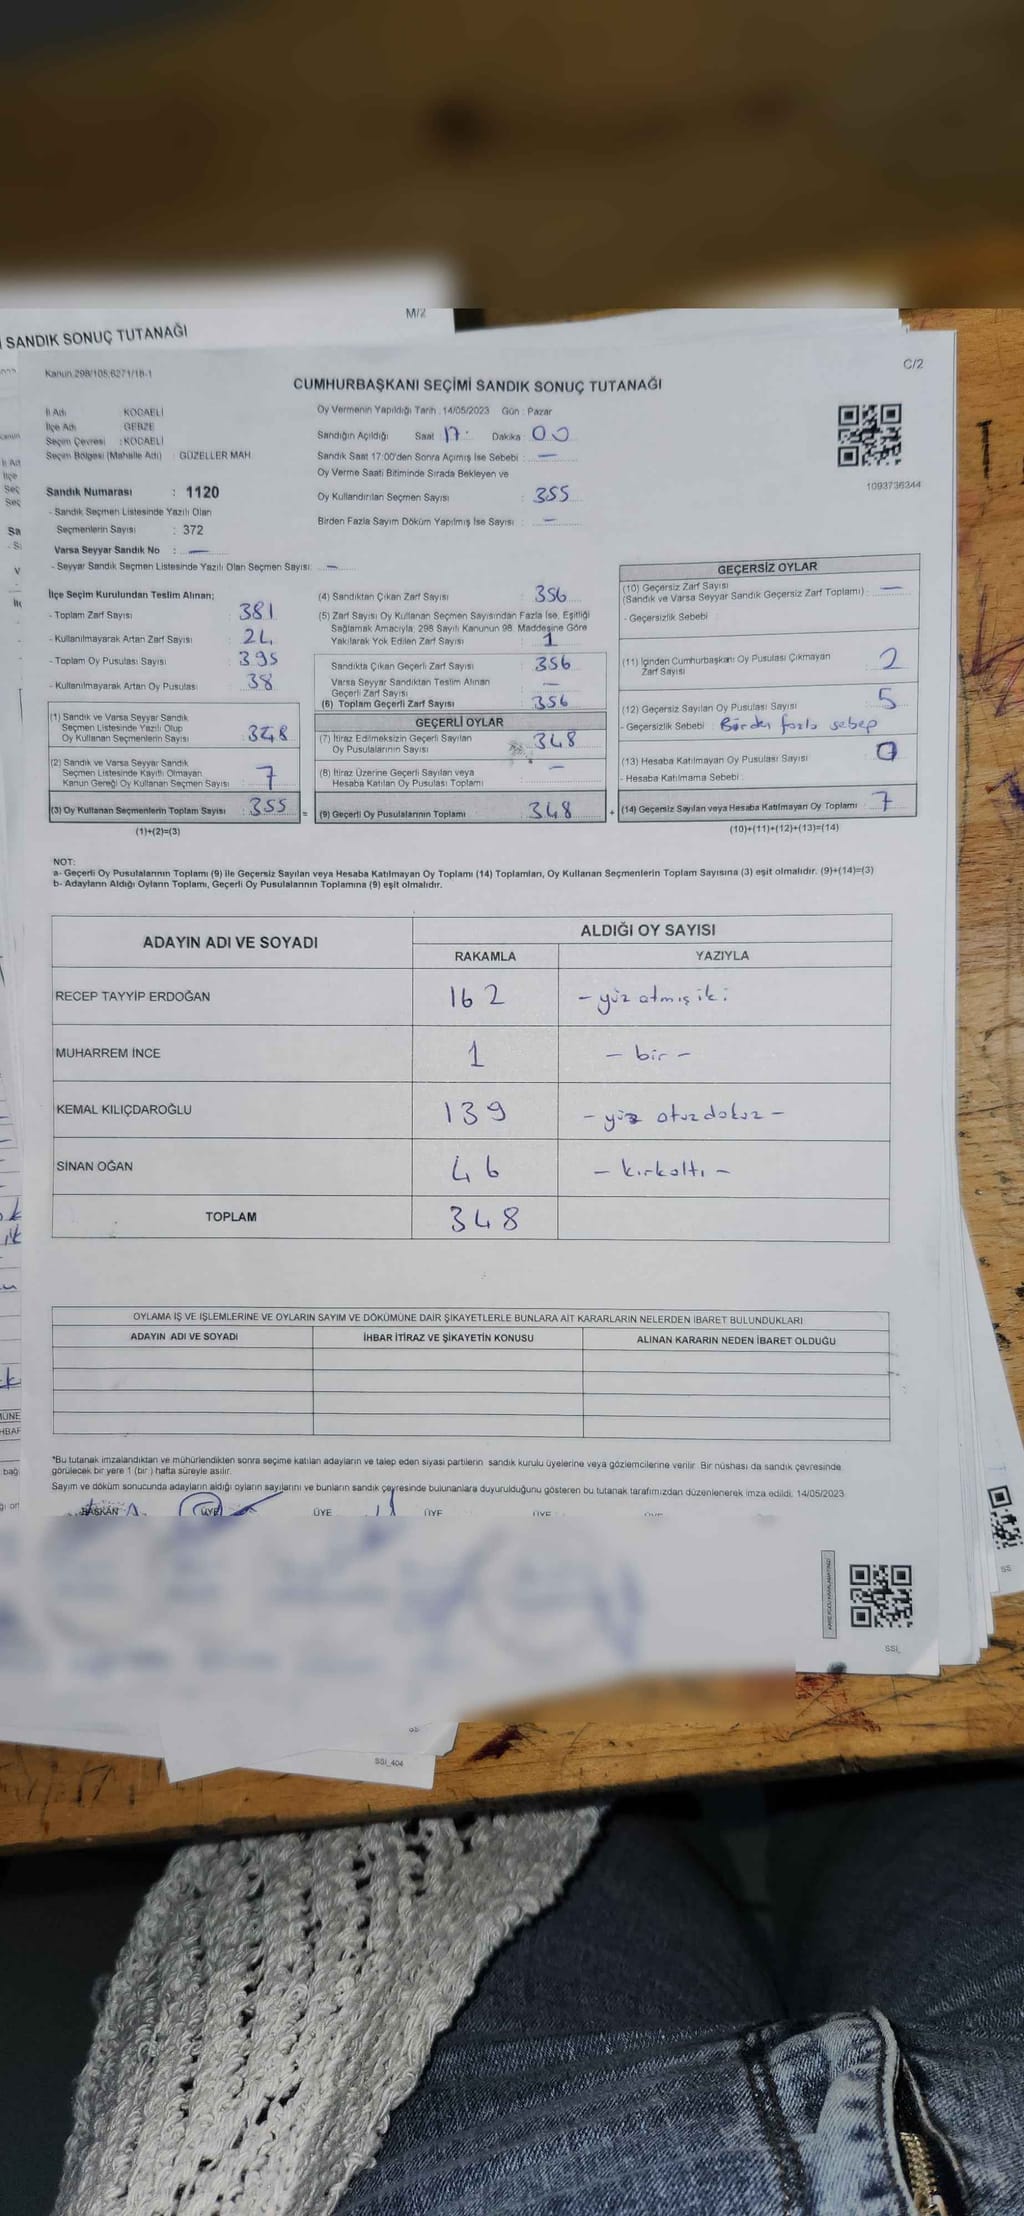 M/2
SANDIK SONUÇ TUTANAĞI
C/2
Kanun 298/105,6271/18-1
CUMHURBAŞKANI SEÇİMİ SANDIK SONUÇ TUTANAĞI
İl Adı KOCAELİ
İlçe Adı GEBZE
Seçim Çevresi : KOCAELİ
Seçim Bölgesi (Mahalle Adı) : GÜZELLER MAH.
Sandık Numarası : 1120
- Sandık Seçmen Listesinde Yazılı Olan
Seçmenlerin Sayısı : 372
Varsa Seyyar Sandık No : —
- Seyyar Sandık Seçmen Listesinde Yazılı Olan Seçmen Sayısı: —
Oy Vermenin Yapıldığı Tarih : 14/05/2023 Gün : Pazar
Sandığın Açıldığı Saat 17: Dakika : 00
Sandık Saat 17:00'den Sonra Açılmış İse Sebebi : —
Oy Verme Saati Bitiminde Sırada Bekleyen ve
Oy Kullandırılan Seçmen Sayısı : 355
Birden Fazla Sayım Döküm Yapılmış İse Sayısı : —
1093736344
İlçe Seçim Kurulundan Teslim Alınan;
- Toplam Zarf Sayısı : 381
- Kullanılmayarak Artan Zarf Sayısı : 24
- Toplam Oy Pusulası Sayısı : 395
- Kullanılmayarak Artan Oy Pusulası : 38
(1) Sandık ve Varsa Seyyar Sandık
Seçmen Listesinde Yazılı Olup
Oy Kullanan Seçmenlerin Sayısı : 348
(2) Sandık ve Varsa Seyyar Sandık
Seçmen Listesinde Kayıtlı Olmayan
Kanun Gereği Oy Kullanan Seçmen Sayısı : 7
(3) Oy Kullanan Seçmenlerin Toplam Sayısı : 355
(1)+(2)=(3)
(4) Sandıktan Çıkan Zarf Sayısı : 356
(5) Zarf Sayısı Oy Kullanan Seçmen Sayısından Fazla İse, Eşitliği
Sağlamak Amacıyla; 298 Sayılı Kanunun 98. Maddesine Göre
Yakılarak Yok Edilen Zarf Sayısı : 1
Sandıkta Çıkan Geçerli Zarf Sayısı : 356
Varsa Seyyar Sandıktan Teslim Alınan
Geçerli Zarf Sayısı : —
(6) Toplam Geçerli Zarf Sayısı : 356
GEÇERLİ OYLAR
(7) İtiraz Edilmeksizin Geçerli Sayılan
Oy Pusulalarının Sayısı : 348
(8) İtiraz Üzerine Geçerli Sayılan veya
Hesaba Katılan Oy Pusulası Toplamı : —
(9) Geçerli Oy Pusulalarının Toplamı : 348
GEÇERSİZ OYLAR
(10) Geçersiz Zarf Sayısı
(Sandık ve Varsa Seyyar Sandık Geçersiz Zarf Toplamı) : —
- Geçersizlik Sebebi
(11) İçinden Cumhurbaşkanı Oy Pusulası Çıkmayan
Zarf Sayısı : 2
(12) Geçersiz Sayılan Oy Pusulası Sayısı : 5
- Geçersizlik Sebebi : Birden fazla sebep
(13) Hesaba Katılmayan Oy Pusulası Sayısı : 0
- Hesaba Katılmama Sebebi :
(14) Geçersiz Sayılan veya Hesaba Katılmayan Oy Toplamı : 7
(10)+(11)+(12)+(13)=(14)
NOT:
a- Geçerli Oy Pusulalarının Toplamı (9) ile Geçersiz Sayılan veya Hesaba Katılmayan Oy Toplamı (14) Toplamları, Oy Kullanan Seçmenlerin Toplam Sayısına (3) eşit olmalıdır. (9)+(14)=(3)
b- Adayların Aldığı Oyların Toplamı, Geçerli Oy Pusulalarının Toplamına (9) eşit olmalıdır.
ADAYIN ADI VE SOYADI ALDIĞI OY SAYISI
RAKAMLA YAZIYLA
RECEP TAYYİP ERDOĞAN 162 - yüz atmış iki
MUHARREM İNCE 1 - bir -
KEMAL KILIÇDAROĞLU 139 - yüz otuzdokuz -
SİNAN OĞAN 46 - kırkaltı -
TOPLAM 348
OYLAMA İŞ VE İŞLEMLERİNE VE OYLARIN SAYIM VE DÖKÜMÜNE DAİR ŞİKAYETLERLE BUNLARA AİT KARARLARIN NELERDEN İBARET BULUNDUKLARI
ADAYIN ADI VE SOYADI İHBAR İTİRAZ VE ŞİKAYETİN KONUSU ALINAN KARARIN NEDEN İBARET OLDUĞU
*Bu tutanak imzalandıktan ve mühürlendikten sonra seçime katılan adayların ve talep eden siyasi partilerin sandık kurulu üyelerine veya gözlemcilerine verilir. Bir nüshası da sandık çevresinde
görülecek bir yere 1 (bir ) hafta süreyle asılır.
Sayım ve döküm sonucunda adayların aldığı oyların sayılarını ve bunların sandık çevresinde bulunanlara duyurulduğunu gösteren bu tutanak tarafımızdan düzenlenerek imza edildi. 14/05/2023
BAŞKAN ÜYE ÜYE ÜYE ÜYE
SSI_
SSI_404